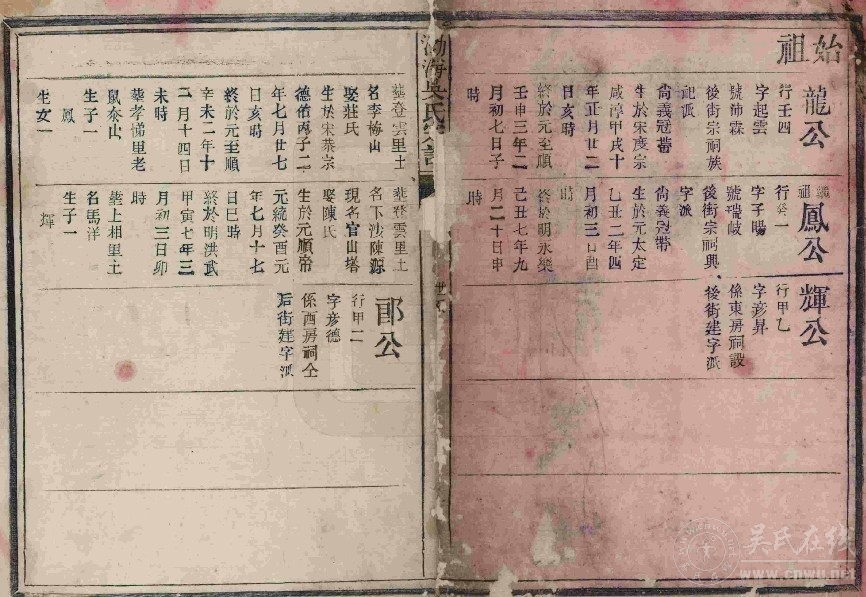 始祖
龍公
行壬四
字起雲
號沛霖
後街宗祠族
記派
尚義冠帶
生於宋度宗
咸淳甲戌十
年正月廿二
日亥時
終於元至順
壬申三年二
月初七日子
時
鳳公
行癸一
字子陽
號瑞岐
後街宗祠興
字派
尚義冠帶
生於元太定
乙丑二年四
月初三日酉
時
終於明永樂
己丑七年九
月二十日申
時
輝公
行甲乙
字彥昇
係東房祠設
後街建字派
渤海吳氏宗譜
世系
葬登雲里土
名李梅山
娶莊氏
生於宋恭宗
德佑丙子二
年七月廿七
日亥時
終於元至順
辛未二年十
二月十四日
未時
葬孝悌里老
鼠泰山
生子一
鳳
生女一
葬登雲里土
名下沙陳源
現名官山塔
娶陳氏
生於元順帝
元統癸酉元
年七月十七
日巳時
終於明洪武
甲寅七年三
月初三日卯
時
葬上相里土
名馬洋
生子一
輝
公
行甲二
字彥德
係西房祠仝
后街建字派
吴氏在线
www.cnwu.net